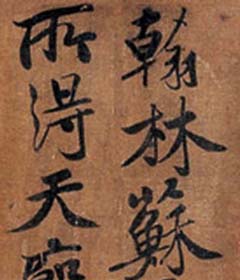 翰林蘇
所得天臨